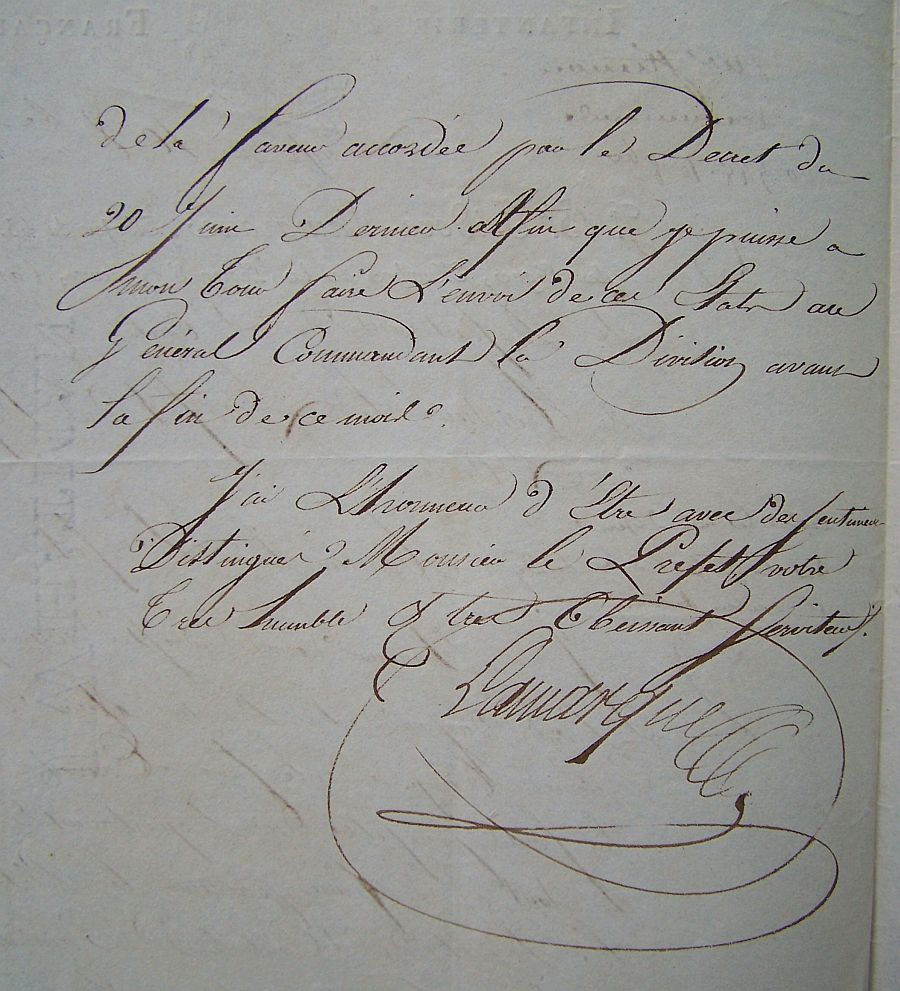 de la faveur accordée par le Decret du
20 Juin Dernier. Afin que je puisse a
mon Tour faire L'envoi de ces Etats au
Général Commandant la Division avant
la fin de ce mois.
J'ai L'honneur d'Etre avec des sentimens
Distingués Monsieur le Prefet, votre
Tres humble & tres Obeissant Serviteur.
Lamarque